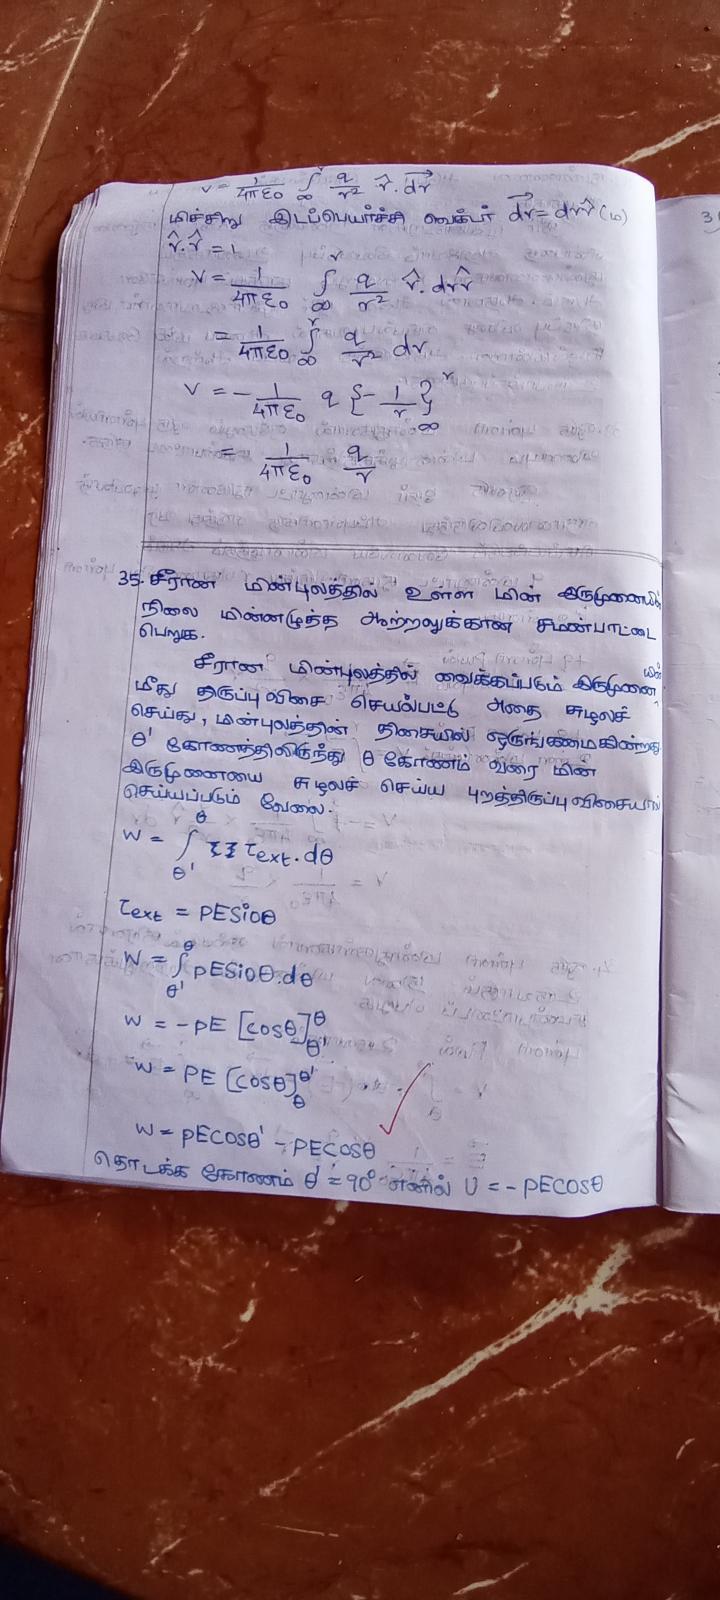 V = 1/4πε₀ ∫∞ q/r² r̂. dr⃗
மிச்சிறு இடப்பெயர்ச்சி வெக்டர் dr⃗ = dr r̂ (ம)
r̂.r̂ = 1
V = 1/4πε₀ ∫∞^r q/r² r̂. dr r̂
= 1/4πε₀ ∫∞^r q/r² dr
V = - 1/4πε₀ q {-1/r}∞^r
= 1/4πε₀ q/r
35. சீரான மின்புலத்தில் உள்ள மின் இருமுனையின்
நிலை மின்னழுத்த ஆற்றலுக்கான சமன்பாட்டை
பெறுக.
சீரான மின்புலத்தில் வைக்கப்படும் இருமுனையின்
மீது திருப்பு விசை செயல்பட்டு அதை சுழலச்
செய்து, மின்புலத்தின் திசையில் ஒருங்கமைகின்றது
θ' கோணத்திலிருந்து θ கோணம் வரை மின்
இருமுனையை சுழலச் செய்ய புறத்திருப்பு விசையால்
செய்யப்படும் வேலை.
W = ∫θ'^θ τext. dθ
τext = PE Sinθ
W = ∫θ'^θ pE Sinθ. dθ
W = -pE [cosθ]θ'^θ
W = PE [cosθ]θ^θ'
W = pEcosθ' - PEcosθ
தொடக்க கோணம் θ' = 90° எனில் U = - pEcosθ
3